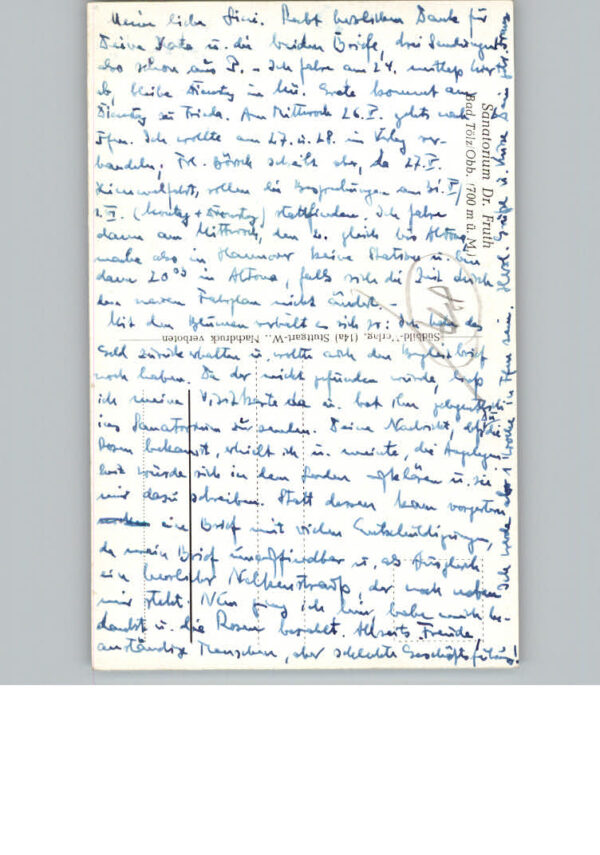 Meine liebe Sini. Recht herzlichen Dank für
Deine Karte u. die beiden Briefe, drei Sendungen
also schon aus P. – Ich fahre am 24. mittags hier
ab, bleibe Dienstag in Mü. Grete kommt am
Dienstag zu Frieda. Am Mittwoch 26.V. geht's nach
Ich wollte am 27. u. 28. in ver-
handeln; Frl. schreibt aber, da 27.V.
Himmelfahrt, sollen die Besprechungen am 31.V/
1.VI (Montag + Dienstag) stattfinden. Ich fahre
dann am Mittwoch, den 2. gleich bis Altona,
mache also in Hannover keine Station u. bin
dann 20⁰³ in Altona, falls sich die Zeit durch
den neuen Fahrplan nicht ändert. –
Mit den Blumen verhält es sich so: Ich habe das
Geld zurück erhalten u. wollte auch den Begleitbrief
noch haben. Da der nicht gefunden wurde, ließ
ich meine Visitkarte da u. bat ihn gelegentlich
ins Sanatorium zu senden. Deine Nachricht, daß die
Rosen bekamst, erhielt ich u. meinte, die Angelegen-
heit würde sich in dem Laden aufklären u. sie
mir dazu schreiben. Statt dessen kam vorgestern
ein Brief mit vielen Entschuldigungen,
da mein Brief unauffindbar u. als Ausgleich
ein herrlicher Nelkenstrauß, der noch neben
mir steht. Nun ging ich hin, habe mich be-
dankt u. die Rosen bezahlt. Allseits Freude,
anständige Menschen, aber schlechte Geschäftsführung!
Ich werde also 1 Woche in sein.
Herzl. Grüße u. Küsse Dein
Sanatorium Dr. Fruth
Bad Tölz/Obb. (700 m ü. M.)
Südbild-Verlag, (14a) Stuttgart-W., Nachdruck verboten